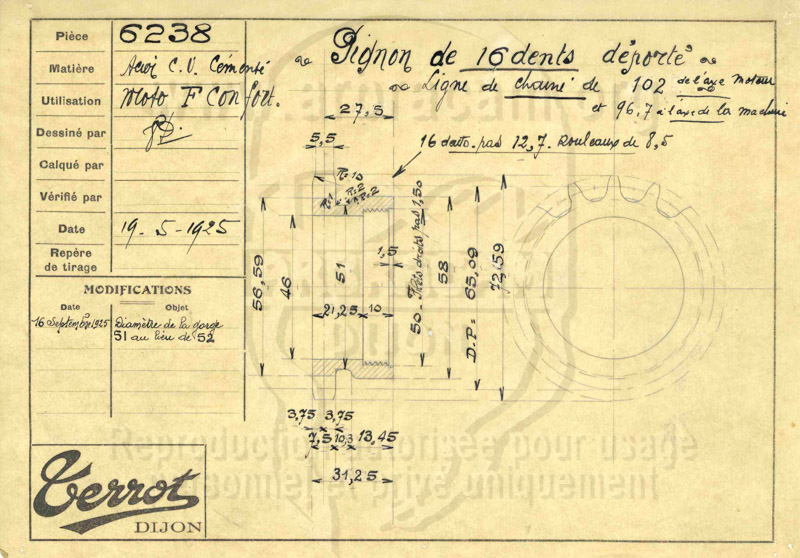 Pièce 6238
Matière Acier C.V. Cémenté
Utilisation Moto F Confort.
Dessiné par
Calqué par
Vérifié par
Date 19-5-1925
Repère
de tirage
MODIFICATIONS
Date Objet
16 Septembre 1925 Diamètre de la gorge
51 au lieu de 52
Pignon de 16 dents déporté
Ligne de chaine de 102 de l'axe moteur
et 96,7 à l'axe de la machine
16 dents pas 12,7. Rouleaux de 8,5
27,5
5,5
R=10
R=1
R=2
R=2
1,5
56,59
46
51
50 - Filets droits pas 1,50
58
D.P= 65,09
72,59
21,25
10
3,75 3,75
7,5 10,3 13,45
31,25
Reproduction autorisée pour usage
personnel et privé uniquement
Terrot
DIJON